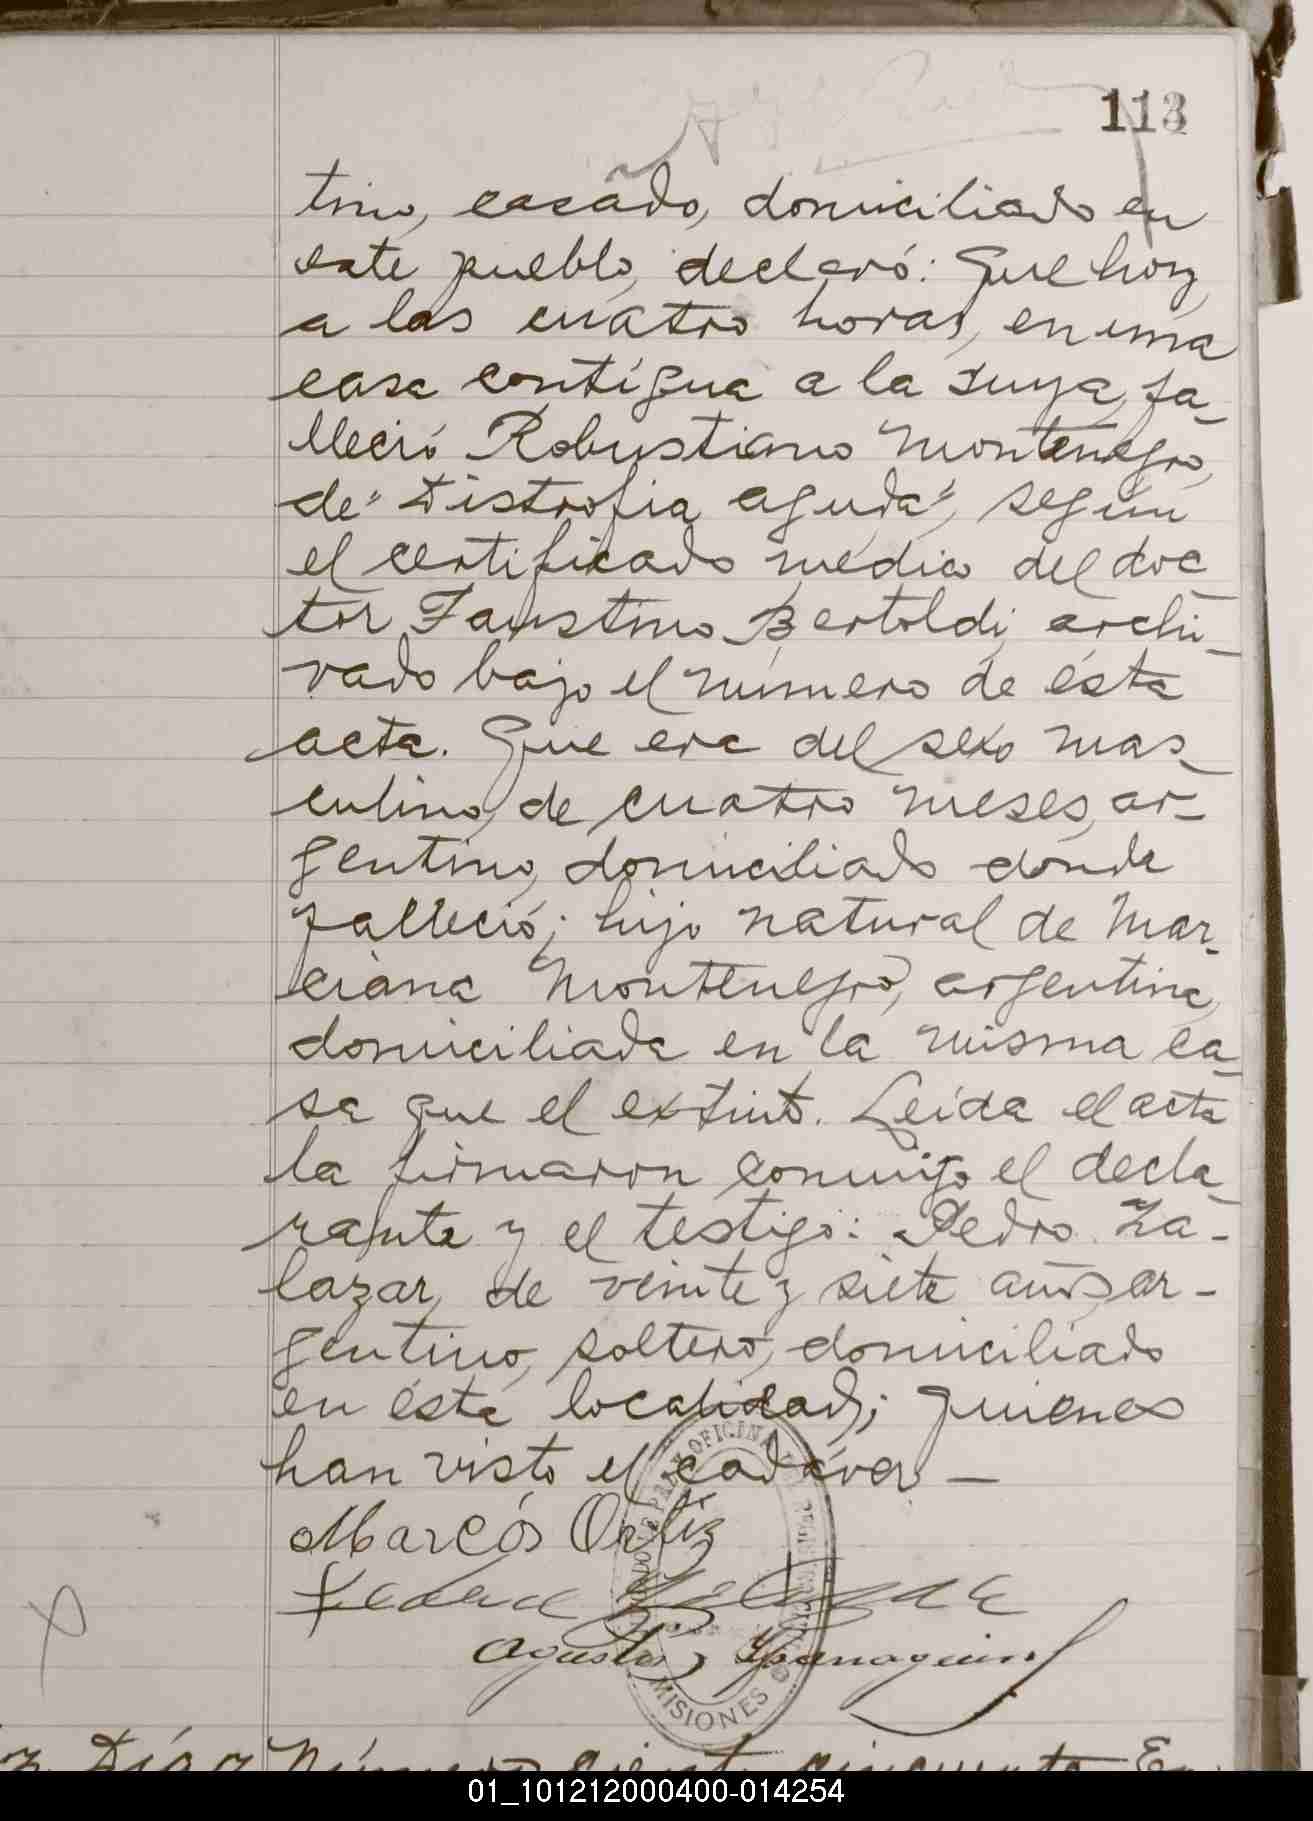 113
tino, casado, domiciliado en
este pueblo, declaró: Que hoy
a las cuatro horas, en una
casa contígua a la suya, fa-
lleció Robustiano Montenegro,
de "Distrofia aguda", según
el certificado medico del doc
tor Faustino Bertoldi, archi-
vado bajo el número de ésta
acta. Que era del sexo mas-
culino, de cuatro meses, ar-
gentino, domiciliado donde
falleció; hijo natural de Mar-
ciana Montenegro, argentina,
domiciliada en la misma ca-
sa que el extinto. Leída el acta
la firmaron conmigo el decla-
rante y el testigo: Pedro Za-
lazar, de veinte y siete años, ar-
gentino, soltero, domiciliado
en ésta localidad; quienes
han visto el cadáver —
Marcós Ortiz
OFICINA
MISIONES
Díaz Número ciento cincuenta En
01_101212000400-014254